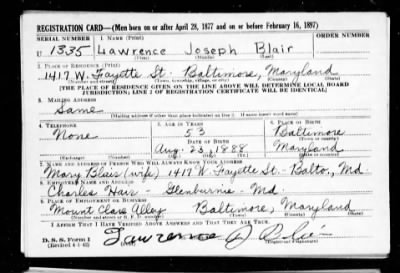 REGISTRATION CARD—(Men born on or after April 28, 1877 and on or before February 16, 1897)
SERIAL NUMBER 1. NAME (Print)
U 1335 Lawrence Joseph Blair
2. PLACE OF RESIDENCE (Print)
1417 W. Fayette St. Baltimore, Maryland
[THE PLACE OF RESIDENCE GIVEN ON THE LINE ABOVE WILL DETERMINE LOCAL BOARD
JURISDICTION; LINE 2 OF REGISTRATION CERTIFICATE WILL BE IDENTICAL]
3. MAILING ADDRESS
Same
[Mailing address if other than place indicated on line 2. If same insert word same]
4. TELEPHONE 5. AGE IN YEARS 6. PLACE OF BIRTH
None 53 Baltimore
DATE OF BIRTH
Aug. 23, 1888 Maryland
7. NAME AND ADDRESS OF PERSON WHO WILL ALWAYS KNOW YOUR ADDRESS
Mary Blair (wife) 1417 W. Fayette St. Balto, Md.
8. EMPLOYER'S NAME AND ADDRESS
Charles - Glenburnie - Md.
9. PLACE OF EMPLOYMENT OR BUSINESS
Mount Clare Alley Baltimore, Maryland
I AFFIRM THAT I HAVE VERIFIED ABOVE ANSWERS AND THAT THEY ARE TRUE.
D. S. S. Form 1
(Revised 4-1-42)
Lawrence J.